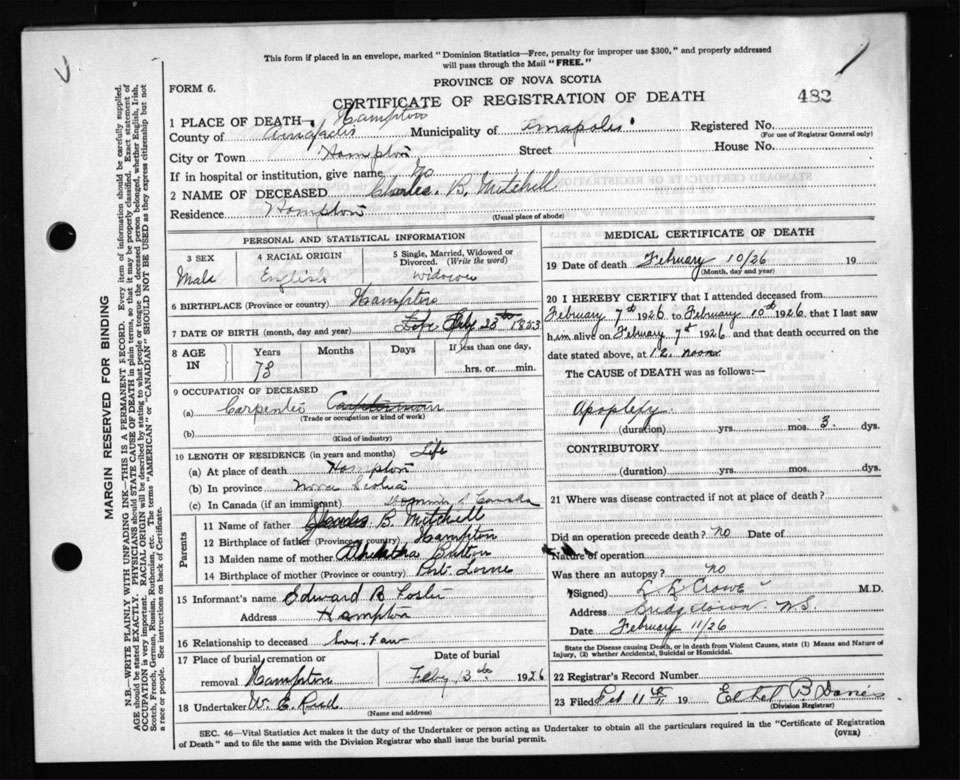 This form if placed in an envelope, marked "Dominion Statistics—Free, penalty for improper use $300," and properly addressed
will pass through the Mail "FREE."
PROVINCE OF NOVA SCOTIA
FORM 6.
CERTIFICATE OF REGISTRATION OF DEATH
482
1 PLACE OF DEATH— Hampton
County of Annapolis Municipality of Annapolis Registered No.
(For use of Registrar General only)
City or Town Hampton Street House No.
If in hospital or institution, give name No
2 NAME OF DECEASED Charles. B. Mitchell
Residence Hampton
(Usual place of abode)
PERSONAL AND STATISTICAL INFORMATION
3 SEX 4 RACIAL ORIGIN 5 Single, Married, Widowed or
Divorced. (Write the word)
Male English Widower
6 BIRTHPLACE (Province or country) Hampton
7 DATE OF BIRTH (month, day and year) 25th 1853
8 AGE IN Years Months Days If less than one day,
73 hrs. or min.
9 OCCUPATION OF DECEASED
(a) Carpenter
(Trade or occupation or kind of work)
(b)
(Kind of industry)
10 LENGTH OF RESIDENCE (in years and months) Life
(a) At place of death Hampton
(b) In province Nova Scotia
(c) In Canada (if an immigrant) Canada
Parents
11 Name of father B. Mitchell
12 Birthplace of father (Province or country) Hampton
13 Maiden name of mother
14 Birthplace of mother (Province or country) Port Lorne
15 Informant's name Edward B Foster
Address Hampton
16 Relationship to deceased Law
17 Place of burial, cremation or Date of burial
removal Hampton 13 1926
18 Undertaker W. E. Reed
(Name and address)
MEDICAL CERTIFICATE OF DEATH
19 Date of death February 10/26 19
(Month, day and year)
20 I HEREBY CERTIFY that I attended deceased from
February 7th 1926 to February 10th 1926, that I last saw
him alive on February 7th 1926 and that death occurred on
date stated above, at 12. noon
The CAUSE OF DEATH was as follows:—
Apoplexy
(duration) yrs. mos. 3. dys.
CONTRIBUTORY
(duration) yrs. mos. dys.
21 Where was disease contracted if not at place of death?
Did an operation precede death? no Date of
Nature of operation
Was there an autopsy? no
(Signed) L. L. Crowe M.D.
Address Bridgetown. N.S.
Date February 11/26
State the Disease causing Death, or in death from Violent Causes, state (1) Means and Nature of
Injury, (2) whether Accidental, Suicidal or Homicidal.
22 Registrar's Record Number
23 Filed Feb 11th 19 Ethel B
(Division Registrar)
SEC. 46—Vital Statistics Act makes it the duty of the Undertaker or person acting as Undertaker to obtain all the particulars required in the "Certificate of Registration
of Death" and to file the same with the Division Registrar who shall issue the burial permit.
(OVER)
MARGIN RESERVED FOR BINDING
N.B.—WRITE PLAINLY WITH UNFADING INK—THIS IS A PERMANENT RECORD. Every item of information should be carefully supplied.
AGE should be stated EXACTLY. PHYSICIANS should STATE CAUSE OF DEATH in plain terms, so that it may be properly classified. Exact statement of
OCCUPATION is very important. RACIAL ORIGIN will be described by stating to what people or tongue the deceased person belonged, whether English, Irish,
Scotch, French, German, Russian, Ruthenian, etc. The terms "AMERICAN" or "CANADIAN" SHOULD NOT BE USED as they express citizenship but not
a race or people. See instructions on back of Certificate.